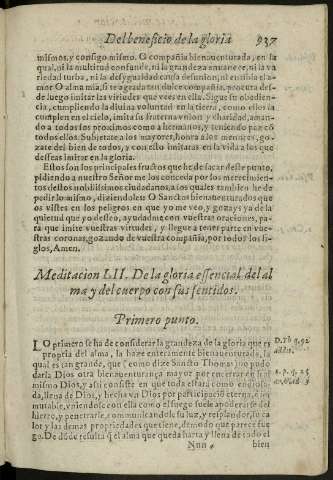 Del beneficio de la gloria 937
mismos, y consigo mismo. O compañia bienauenturada, en la
qual, ni la multitud confunde, ni la grandeza enuanece, ni la va
riedad turba, ni la desygualdad causa desunion, ni entibia el a-
mor. O alma mia, si te agrada tan dulce compañia, procura des-
de luego imitar las virtudes que vees en ella. Sigue su obedien-
cia, cumpliendo la diuina voluntad en la tierra, como ellos la
cumplen en el cielo, imita su fraterna vnion y charidad, aman-
do a todos los proximos como a hermanos, y teniendo paz cõ
todos ellos. Subjetate a los mayores, honra a los menores, go-
zate del bien de todos, y con esto imitaràs en la vida a los que
desseas imitar en la gloria.
Estos son los principales fructos que he de sacar deste punto,
pidiendo a nuestro Señor me los conceda por los merecimien-
tos destos nobilissimos ciudadanos, a los quales tambien he de
pedir lo mismo, diziendoles: O Sanctos bienauenturados que
os vistes en los peligros en que yo me veo, y gozays ya de la
quietud que yo desseo, ayudadme con vuestras oraciones, pa-
ra que imite vuestras virtudes, y llegue a tener parte en vues-
tras coronas, gozando de vuestra compañia, por todos los si-
glos, Amen.
Meditacion LII. De la gloria essencial del al
ma y del cuerpo con sus sentidos.
Primero punto.
LO primero se ha de considerar la grandeza de la gloria que es
propria del alma, la haze enteramente bienauenturada, la
qual es tan grande, que (como dize Sancto Thomas) no pudo
darla Dios otra bienauenturança mayor por encerrarse en el
mismo Dios, y assi consiste en que toda estarà como endiosa-
da, llena de Dios, y hecha vn Dios por participacion eterna, è in-
mutable, vniendose con ella como el fuego suele apoderarse del
hierro, y penetrarse, comunicandole su luz, y resplandor, su ca
lor y las demas propriedades que tiene, de modo que parece fue-
go. De dõde resulta q̃ el alma que queda harta y llena de todo el
Nnn bien